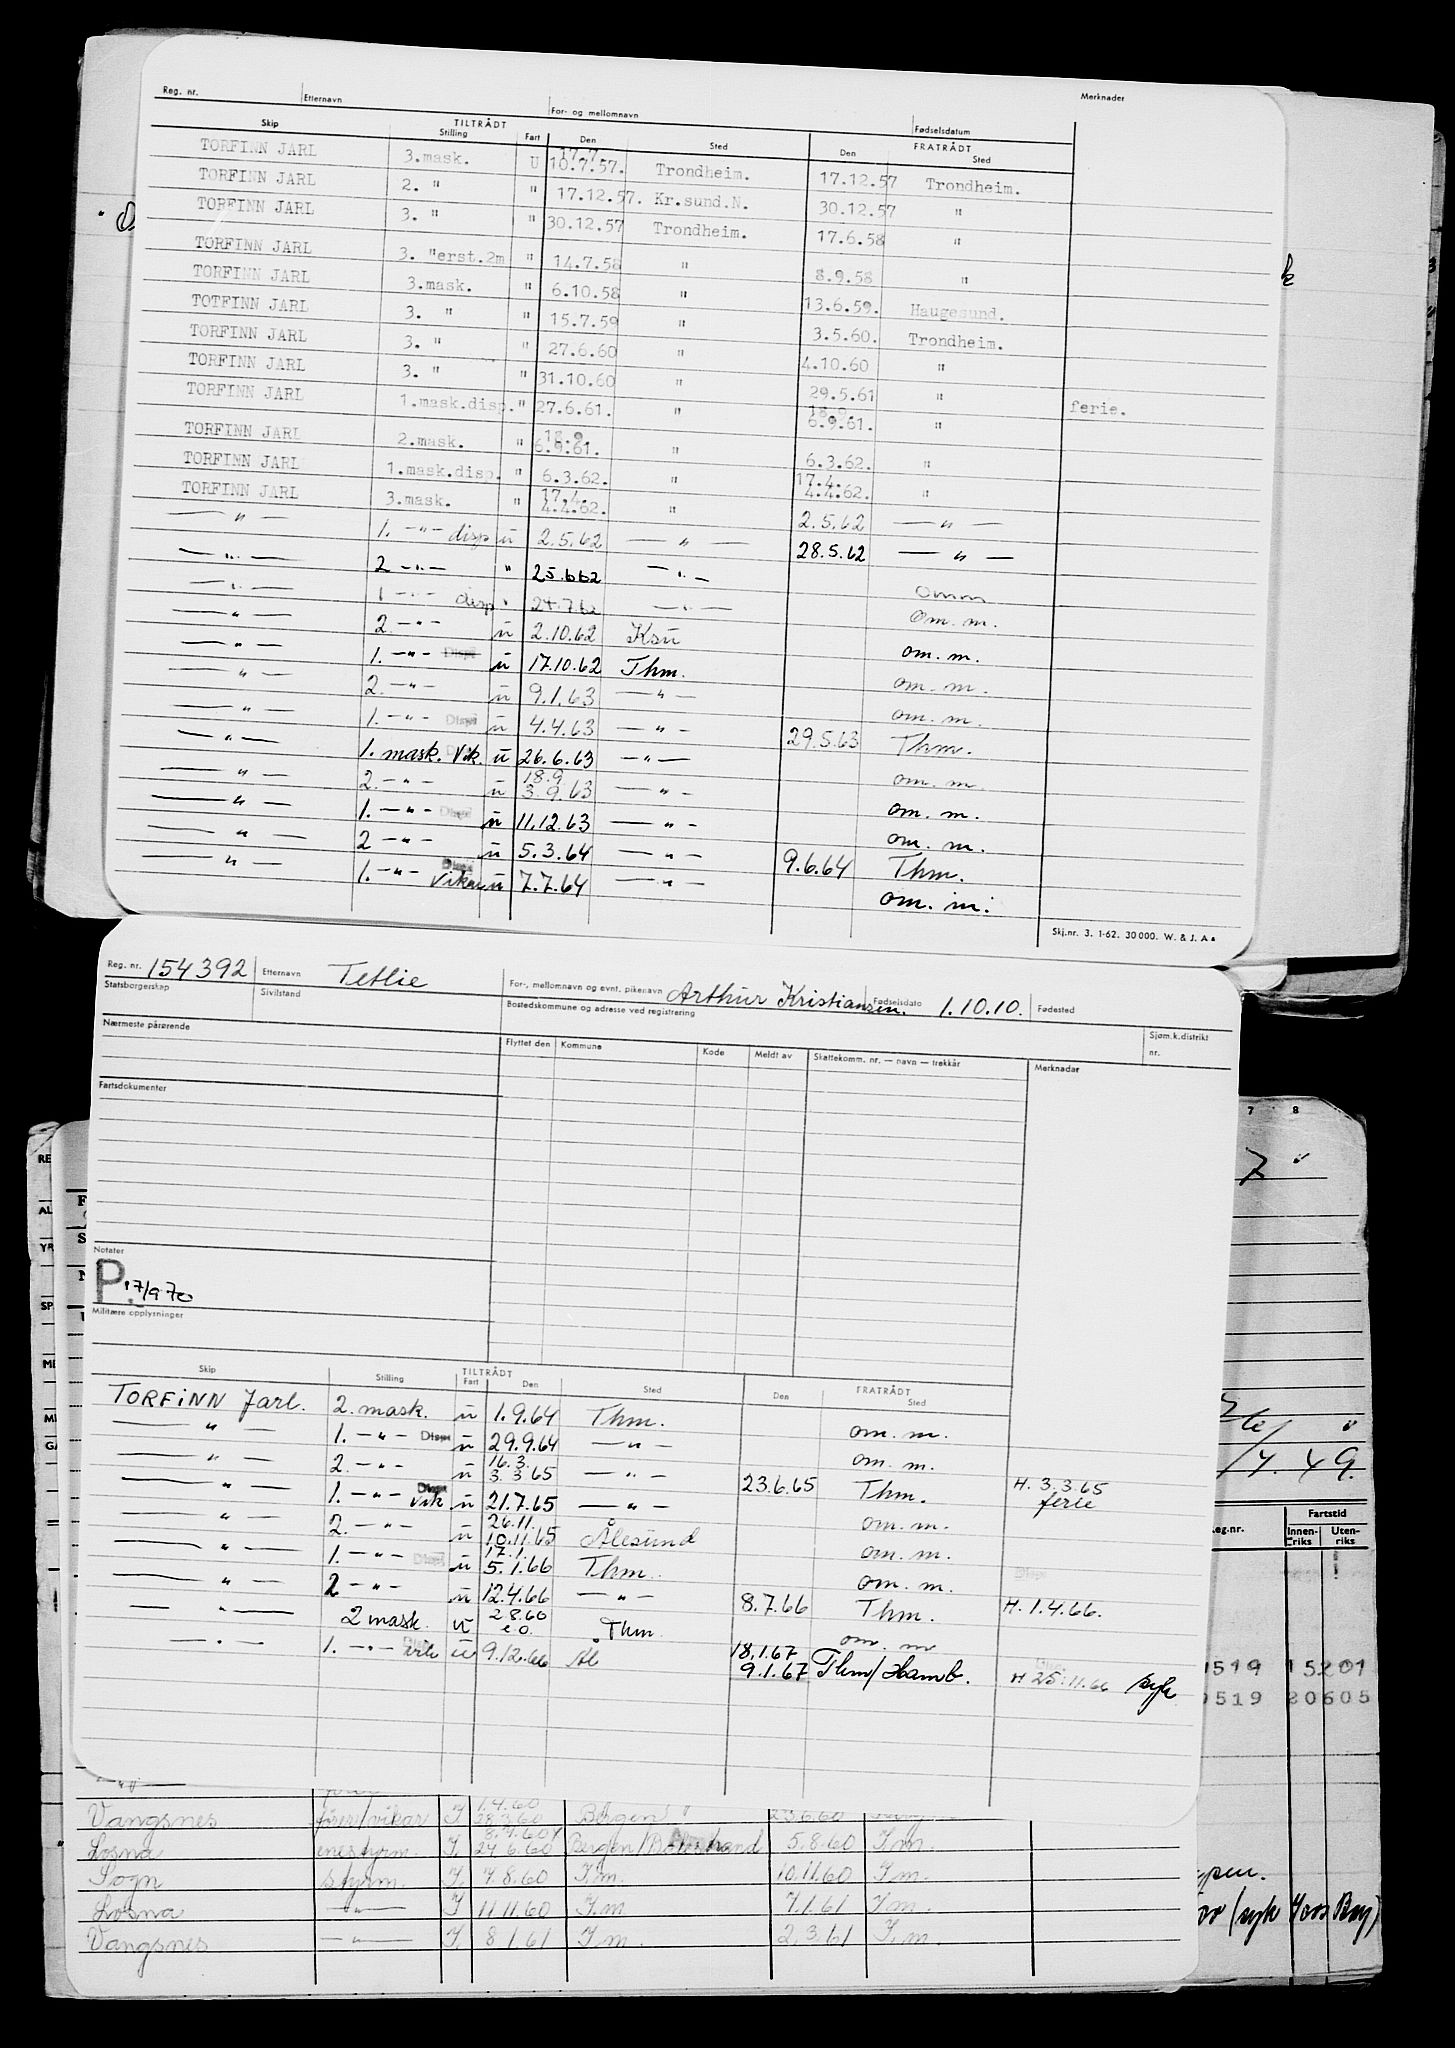 Reg. nr. Etternavn For- og mellomnavn Fødselsdatum Merknader
TILTRÅDT FRATRÅDT
Skip Stilling Fart Den Sted Den Sted
17.7.
TORFINN JARL 3.mask. U 10.7.57. Trondheim. 17.12.57 Trondheim.
TORFINN JARL 2. " " 17.12.57. Kr.sund.N. 30.12.57 "
TORFINN JARL 3. " " 30.12.57 Trondheim. 17.6.58 "
TORFINN JARL 3. "erst.2m " 14.7.58 " 8.9.58 "
TORFINN JARL 3.mask. " 6.10.58 " 13.6.59. Haugesund.
TOTFINN JARL 3. " " 15.7.59 " 3.5.60. Trondheim.
TORFINN JARL 3. " " 27.6.60 " 4.10.60 "
TORFINN JARL 3. " " 31.10.60 " 29.5.61 " ferie.
18.9.
TORFINN JARL 1.mask.disp. " 27.6.61. " 6.9.61. "
18.9.
TORFINN JARL 2.mask. " 6.9.61. " 6.3.62. "
17.4.
TORFINN JARL 1.mask.disp. " 6.3.62. " 4.4.62. "
17.4.
TORFINN JARL 3.mask. " 4.4.62. " 2.5.62 — " —
— " — 1. — " — disp u 2.5.62 — " — 28.5.62 — " —
— " — 2 — " — " 25.6.62 — " — omm
— " — 1 — " — disp " 24.7.62 — " — om. m.
— " — 2. — " — u 2.10.62 Ksu om. m.
— " — 1. — " — Disp u 17.10.62 Thm. om. m.
— " — 2. — " — u 9.1.63 — " — om. m.
— " — 1. — " — Disp u 4.4.63 — " — 29.5.63 Thm.
— " — 1. mask. Vik. u 26.6.63 — " — om. m.
18.9
— " — 2. — " — u 3.9.63 — " — om. m.
— " — 1. — " — Disp u 11.12.63 — " — om. m.
— " — 2 — " — u 5.3.64 — " — 9.6.64 Thm.
— " — 1. — " — Disp Vikar u 7.7.64 — " — om. m.
Skj.nr. 3. 1-62. 30 000. W. & J. A s
Reg. nr. 154392 Etternavn Tetlie For-, mellomnavn og evnt. pikenavn Arthur Kristiansen. Fødselsdato 1.10.10. Fødested
Statsborgerskap Sivilstand Bostedskommune og adresse ved registrering
Nærmeste pårørende Flyttet den Kommune Kode Meldt av Skattekomm. nr. — navn — trekkår Merknader Sjøm.k.distrikt
nr.
Fartsdokumenter
Notater
P. 17/9 70
Militære opplysninger
TILTRÅDT FRATRÅDT
Skip Stilling Fart Den Sted Den Sted
TORFINN Jarl. 2. mask. u 1.9.64 Thm. om. m.
— " — 1. — " — Disp u 29.9.64 — " — om. m.
16.3.
— " — 2. — " — u 3.3.65 — " — 23.6.65 Thm. H. 3.3.65
ferie
— " — 1. — " — Disp Vik u 21.7.65 — " — om. m.
26.11.
— " — 2. — " — u 10.11.65 Ålesund om. m.
17.1.
— " — 1. — " — Disp u 5.1.66 Thm. om. m.
— " — 2 — " — u 12.4.66 — " — 8.7.66 Thm. H. 1.4.66.
— " — 2 mask. u 2 8.60 Thm om. m
e.o.
— " — 1. — " — u 9.12.66 Ål 18.1.67
9.1.67 Thm/Hamb. H 25.11.66 syk
1.4.60
Vangsnes fører/vikar I 28.3.60 Bergen 23.6.60
Losna enestyrm. I. 24 6.60 Bergen/ 5.8.60 I.m.
Sogn styrm. I. 7 8.60 I.m. 10.11.60 I.m.
Losna — " — I 11 11.60 I.m 7.1.61 I.m.
Vangsnes — " — I. 8 1 61 I m. 2.3.61 I.m.
7 8
7
4. 49.
eg.nr. Fartstid
Innen-riks Uten-riks
519 15201
519 20605